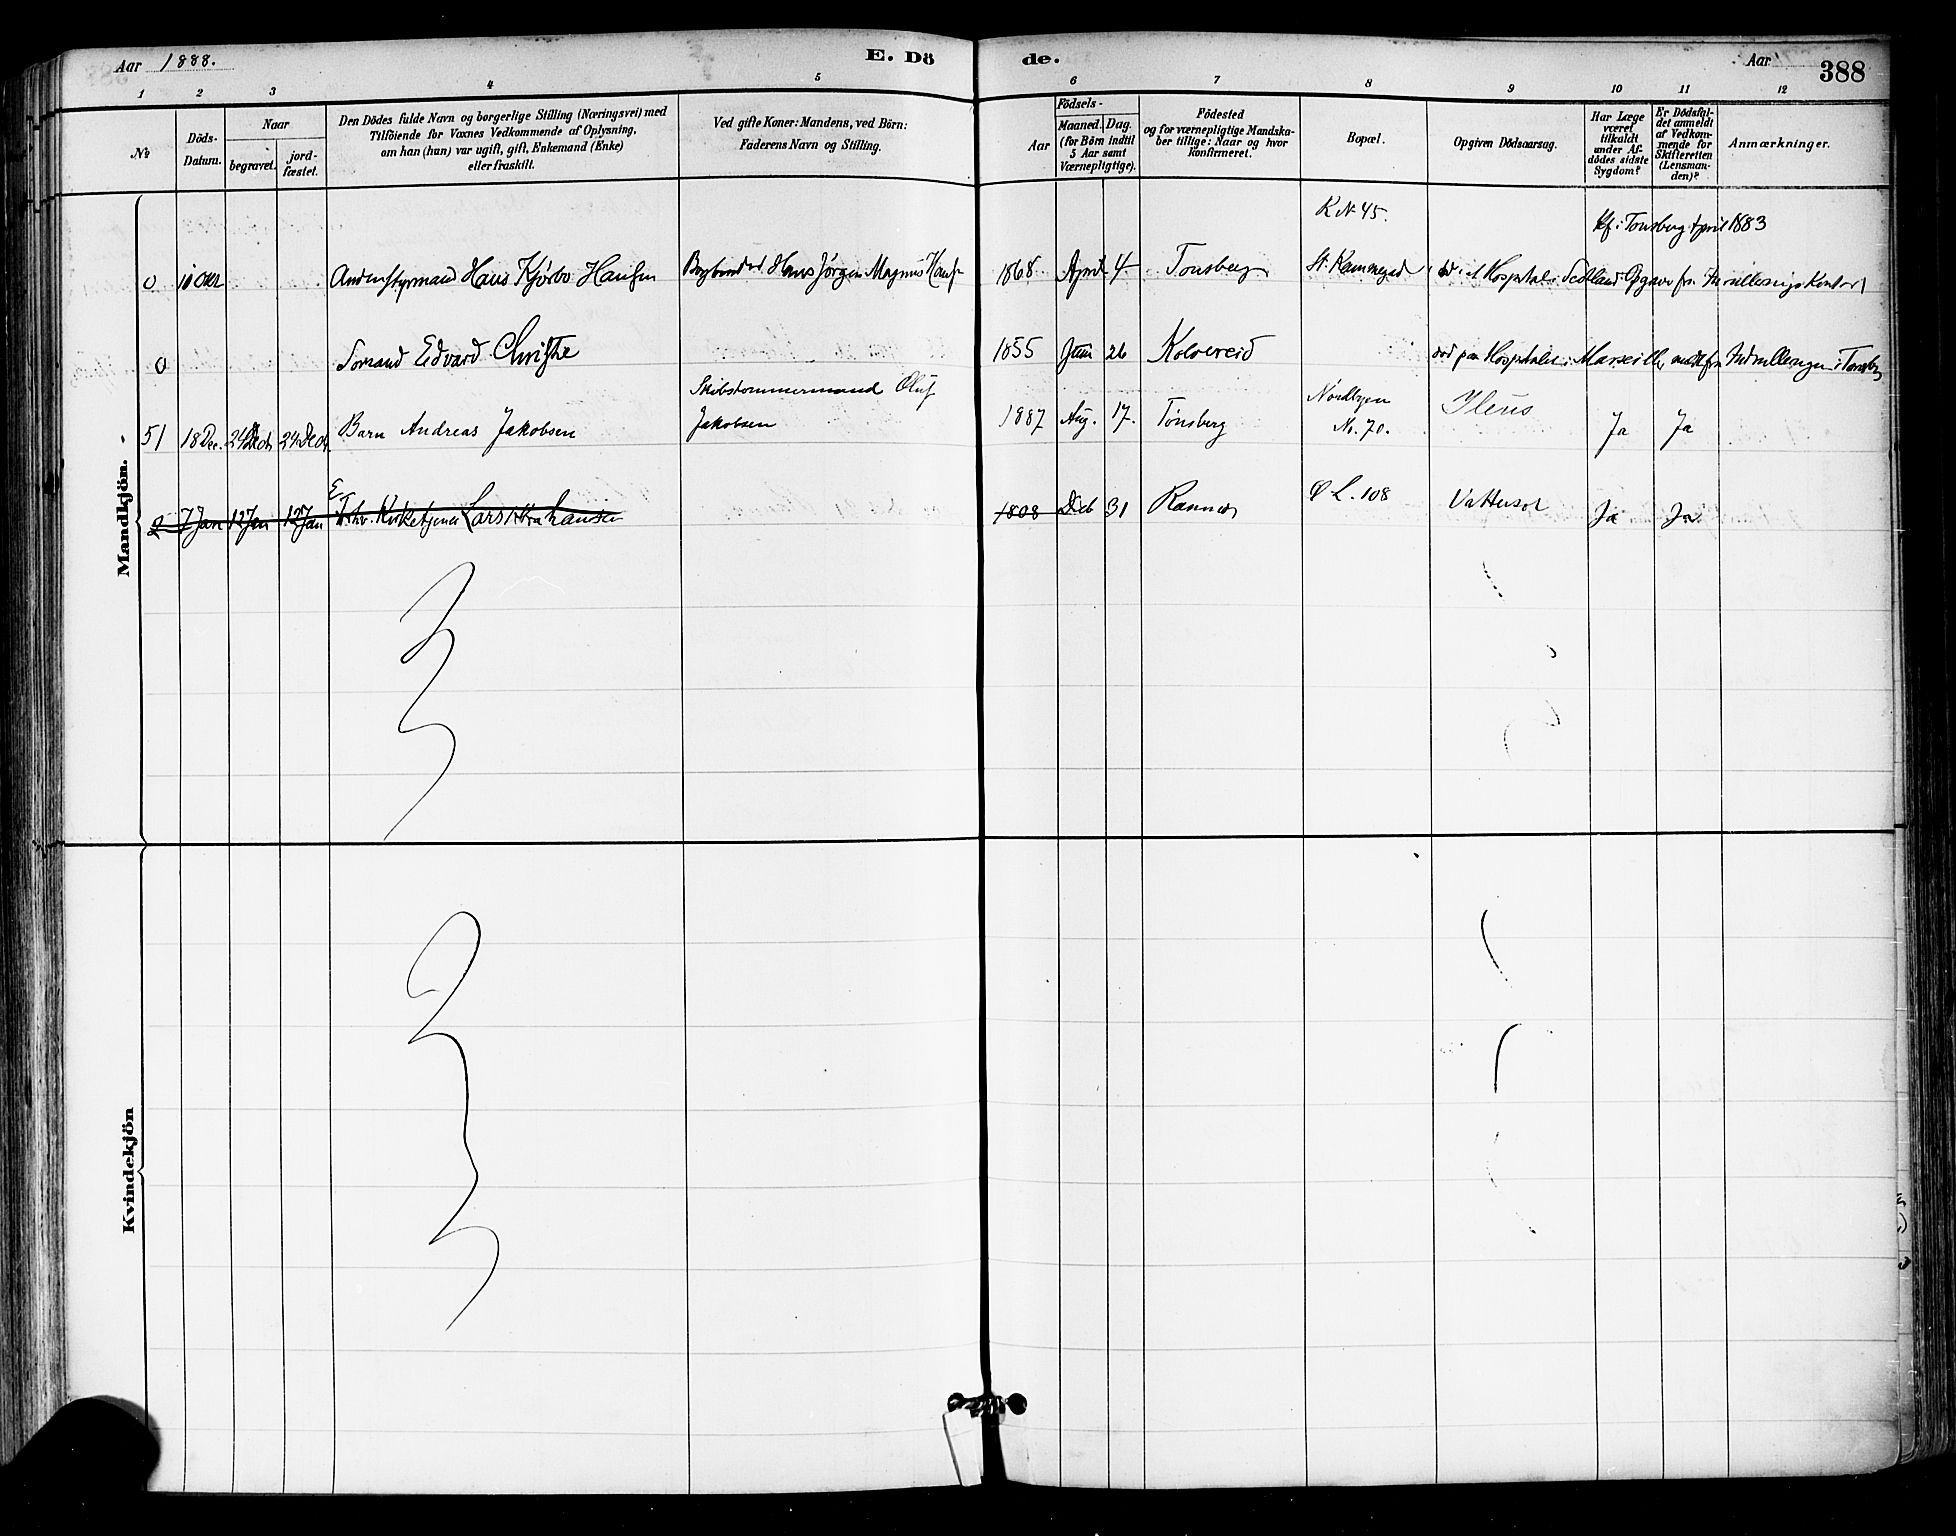 Aar 1888.
E. Dö
de.
Aar
388
1 2 3 4 5 6 7 8 9 10 11 12
№
Döds-
Datum.
Naar
begravet.
jord-
fæstet.
Den Dödes fulde Navn og borgerlige Stilling (Næringsvei) med
Tilföiende for Voxnes Vedkommende af Oplysning,
om han (hun) var ugift, gift, Enkemand (Enke)
eller fraskilt.
Ved gifte Koner: Mandens, ved Börn:
Faderens Navn og Stilling.
Födsels-
Aar
Maaned.
Dag.
(for Börn indtil
5 Aar samt
Værnepligtige).
Födested
og for værnepligtige Mandska-
ber tillige: Naar og hvor
konfirmeret.
Bopæl.
Opgiven Dödsaarsag.
Har Læge
været
tilkaldt
under Af-
dödes sidste
Sygdom?
Er Dödsfal-
det anmeldt
af Vedkom-
mende for
Skifteretten
(Lensman-
den)?
Anmærkninger.
Mandkjön.
K N 45.
Kf. i Tonsberg April 1883
0 10 Okt Andenstyrmand Hans Kjørbo Hansen Bogbinder Hans Jørgen Magnus Hans 1868 April 4 Tonsberg St. Kammegad død i et Hospital i Scotland Opgave fra Kontor
0 Sømand Edvard Christie 1855 Juni 26 Kolvereid død paa Hospitalet i Marseille, meldt fra Indrulleringen i Tonsberg
Skibstømmermand Oluf
51 18 Dec. 24 Dec 24 Dec Barn Andreas Jakobsen Jakobsen 1887 Aug. 17. Tønsberg Nordbyen
No. 70. Ileus Ja Ja
2 7 Jan 12 Jan 12 Jan E F. hv. Kirketjener Lars 1808 Deb 31 Ramnes Ø L. 108 Vattersot Ja Ja
Kvindekjön